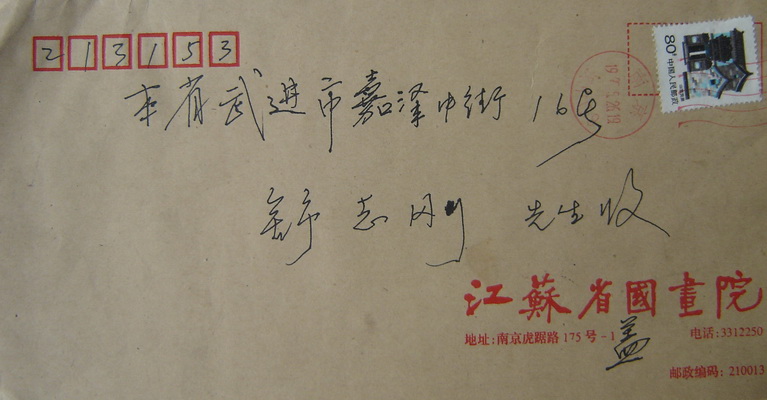 213153
80分
中国人民邮政
本省武进市嘉泽中街16号
舒志刚 先生收
江蘇省國畫院
地址:南京虎踞路175号-1 盖
电话:3312250
邮政编码: 210013